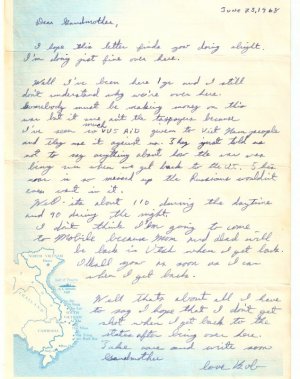 June 23, 1968
Dear Grandmother,
I hope this letter finds you doing alright.
I'm doing just fine over here.
Well I've been here 1 yr and I still
don't understand why we're over here.
Somebody must be making money on this
war but it sure aint the taxpayers because
I've seen so much US AID given to Viet Nam people
and they use it against us. They just told us
not to say anything about how the war was
being run when we get back to the US. This
war is so messed up the Russians wouldn't
even want in it.
Well its about 110 during the daytime
and 90 during the night.
I don't think I'm going to come
to Mobile because Mom and dad will
be back in Utah when I get back.
I'll call you as soon as I can
when I get back.
Well thats about all I have
to say I hope that I don't get
shot when I get back to the
states after being over here.
Take care and write some
Grandmother
love Bob
NORTH VIETNAM
CAMBODIA